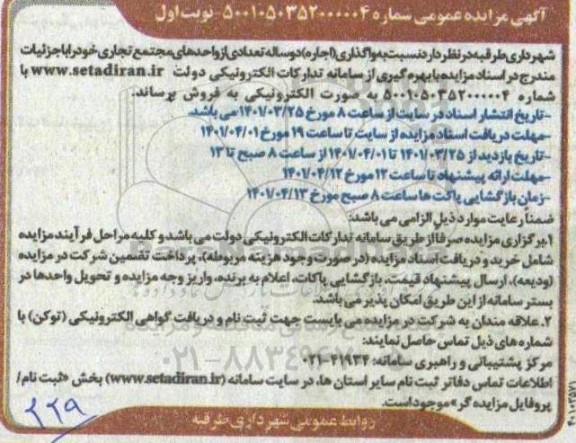 آگهی مزایده عمومی شماره ۵۰۰۱۰۵۰۳۵۲۰۰۰۰۰۴- نوبت اول
شهرداری طرقبه در نظر دارد نسبت به واگذاری (اجاره) دو ساله تعدادی از واحدهای مجتمع تجاری خود را با جزئیات
مندرج در اسناد مزایده با بهره گیری از سامانه تدارکات الکترونیکی دولت www.setadiran.ir با
شماره ۵۰۰۱۰۵۰۳۵۲۰۰۰۰۰۴ به صورت الکترونیکی به فروش برساند.
-تاریخ انتشار اسناد در سایت از ساعت ۸ مورخ ۱۴۰۱/۰۳/۲۵ می باشد.
-مهلت دریافت اسناد مزایده از سایت تا ساعت ۱۹ مورخ ۱۴۰۱/۰۴/۰۱
-تاریخ بازدید از ۱۴۰۱/۰۳/۲۵ تا ۱۴۰۱/۰۴/۰۱ از ساعت ۸ صبح تا ۱۳
-مهلت ارائه پیشنهاد تا ساعت ۱۲ مورخ ۱۴۰۱/۰۴/۱۲
-زمان بازگشایی پاکت ها ساعت ۸ صبح مورخ ۱۴۰۱/۰۴/۱۳
ضمناً رعایت موارد ذیل الزامی می باشد:
۱.برگزاری مزایده صرفا از طریق سامانه تدارکات الکترونیکی دولت می باشد و کلیه مراحل فرآیند مزایده
شامل خرید و دریافت اسناد مزایده (در صورت وجود هزینه مربوطه)، پرداخت تضمین شرکت در مزایده
(ودیعه)، ارسال پیشنهاد قیمت، بازگشایی پاکات، اعلام به برنده، واریز وجه مزایده و تحویل واحدها در
بستر سامانه از این طریق امکان پذیر می باشد.
۲. علاقه مندان به شرکت در مزایده می بایست جهت ثبت نام و دریافت گواهی الکترونیکی (توکن) با
شماره های ذیل تماس حاصل نمایند:
مرکز پشتیبانی و راهبری سامانه: ۴۱۹۳۴-۰۲۱
اطلاعات تماس دفاتر ثبت نام سایر استان ها، در سایت سامانه (www.setadiran.ir) بخش «ثبت نام/
پروفایل مزایده گر» موجود است.
روابط عمومی شهرداری طرقبه
۲۲۹
۴۰۱۰۳۵۷۱